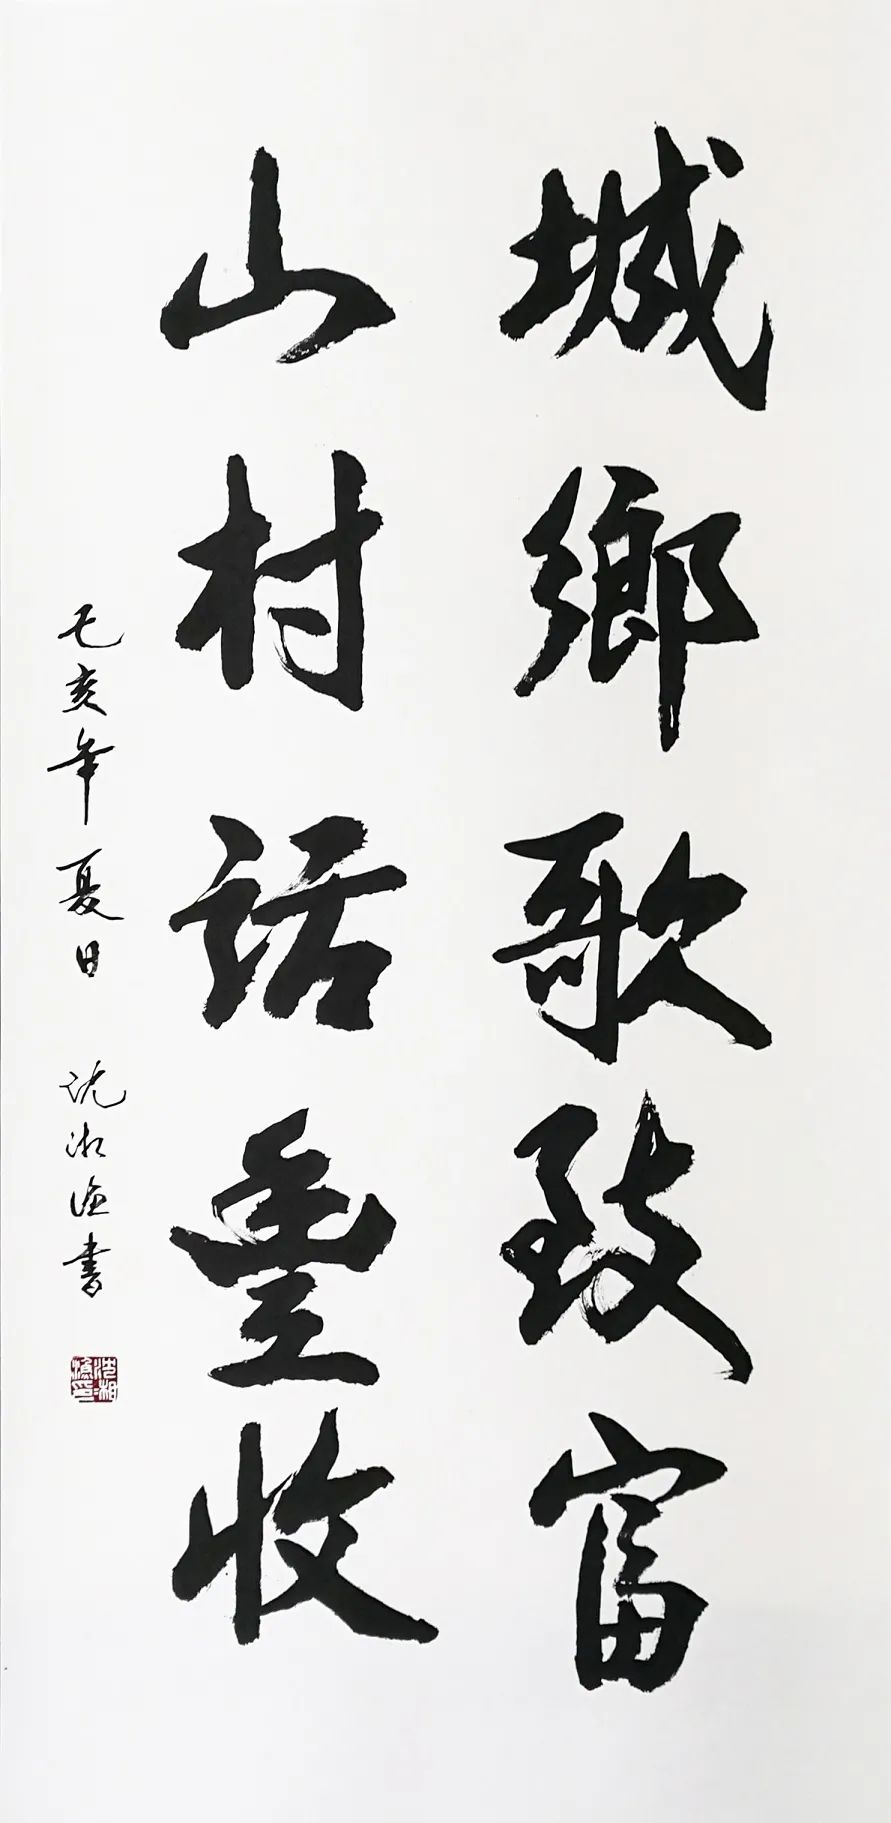 城鄉歌致富
山村話豐收
己亥年夏日 沈湘漁书
沈湘漁印